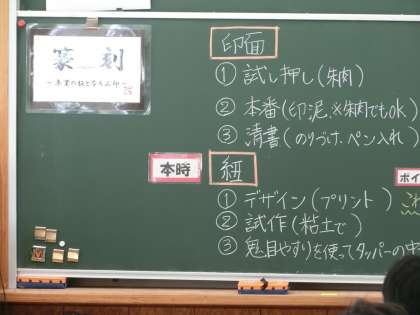 篆刻
印面
① 試し押し(朱肉)
② 本番(印泥、※朱肉でもok)
③ 清書(のりづけ、ペン入れ)
本時
紐
① デザイン(プリント)
② 試作(粘土で)
③ 鬼目やすりを使ってタッパーの中
ポイ
これ